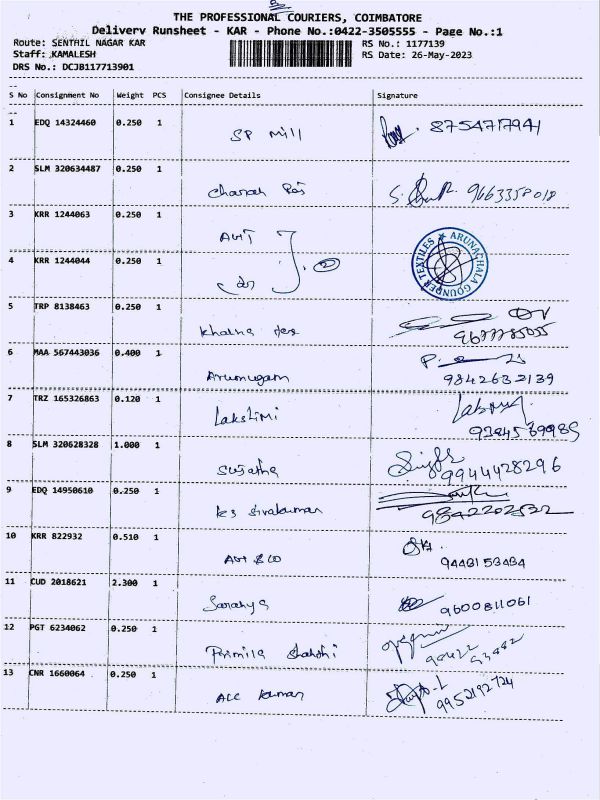 THE PROFESSIONAL COURIERS, COIMBATORE
Delivery Runsheet - KAR - Phone No.:0422-3505555 - Page No.:1
Route: SENTHIL NAGAR KAR RS No.: 1177139
Staff: KAMALESH RS Date: 26-May-2023
DRS No.: DCJB117713901
S No Consignment No Weight PCS Consignee Details Signature
1 EDQ 14324460 0.250 1 SP Mill 8754717941
2 SLM 320634487 0.250 1 Charan Raj 9663358018
3 KRR 1244063 0.250 1
ARUNACHALA GOUNDER TEXTILES
4 KRR 1244044 0.250 1 do 2
5 TRP 8138463 0.250 1 9677785055
6 MAA 567443036 0.400 1 Arumugam 9842632139
7 TRZ 165326863 0.120 1 Lakshmi
8 SLM 320628328 1.000 1 Sujatha 9944428296
9 EDQ 14950610 0.250 1 Sivakumar 9842202522
10 KRR 822932 0.510 1 9443153434
11 CUD 2018621 2.300 1 Saranya 9600811061
12 PGT 6234062 0.250 1
13 CNR 1660064 0.250 1 Kumar 9952192724